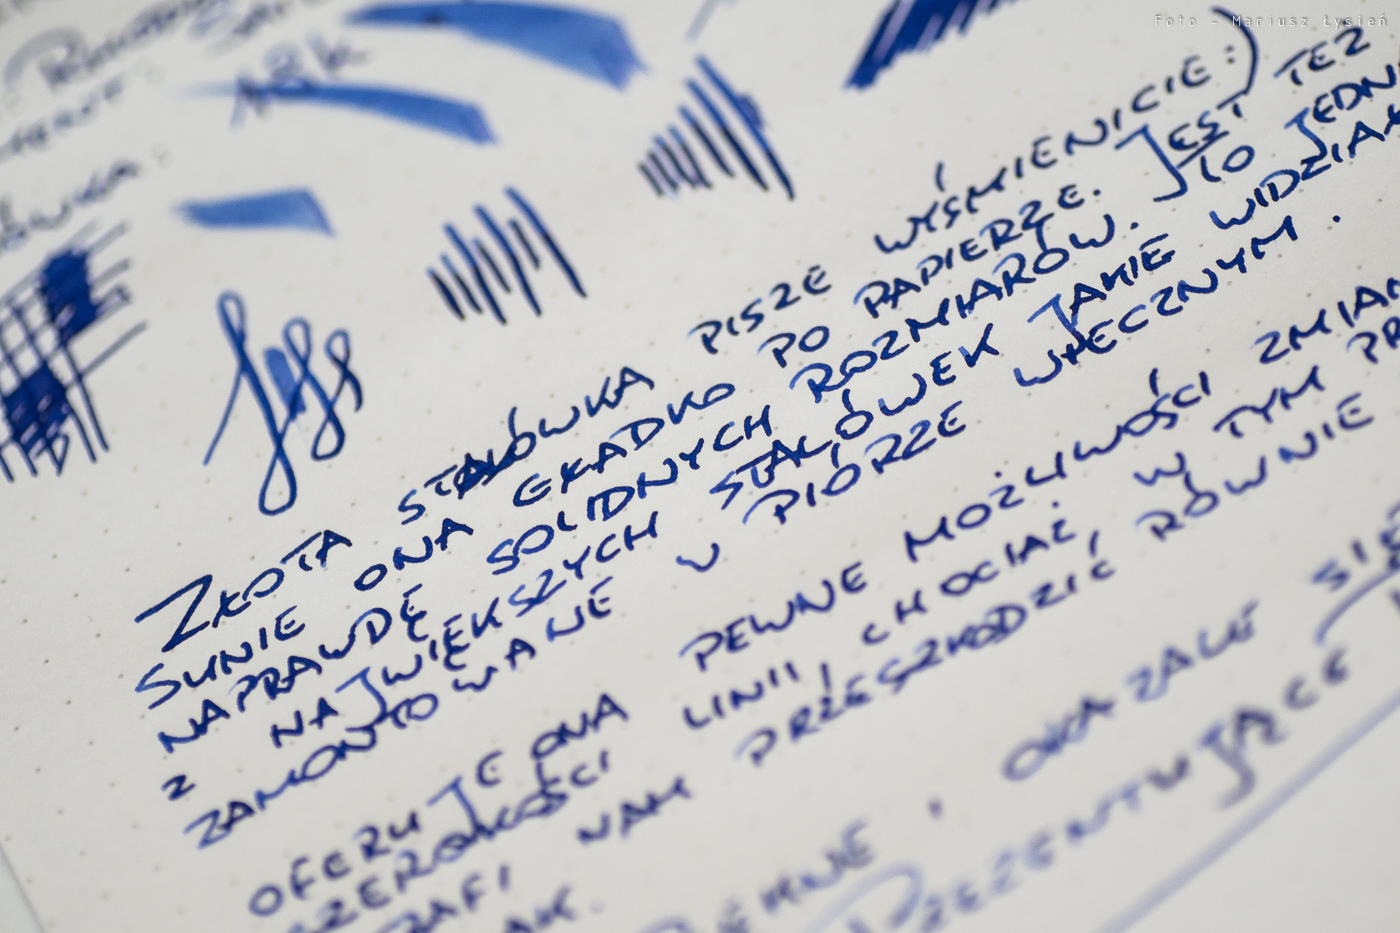 Foto - Mariusz Łysień
18K
ZŁOTA STALÓWKA PISZE WYŚMIENICIE:)
SUNIE ONA GŁADKO PO PAPIERZE. JEST TEŻ
NAPRAWDĘ SOLIDNYCH ROZMIARÓW. TO JEDNA
Z NAJWIĘKSZYCH STALÓWEK JAKIE WIDZIAŁ
ZAMONTOWANE W PIÓRZE WIECZNYM.
OFERUJE ONA PEWNE MOŻLIWOŚCI ZMIAN
SZEROKOŚCI LINII, CHOCIAŻ W TYM
NAM PRZESZKODZIĆ, RÓWNIE
OKAZALE SIĘ
PREZENTUJĄCE